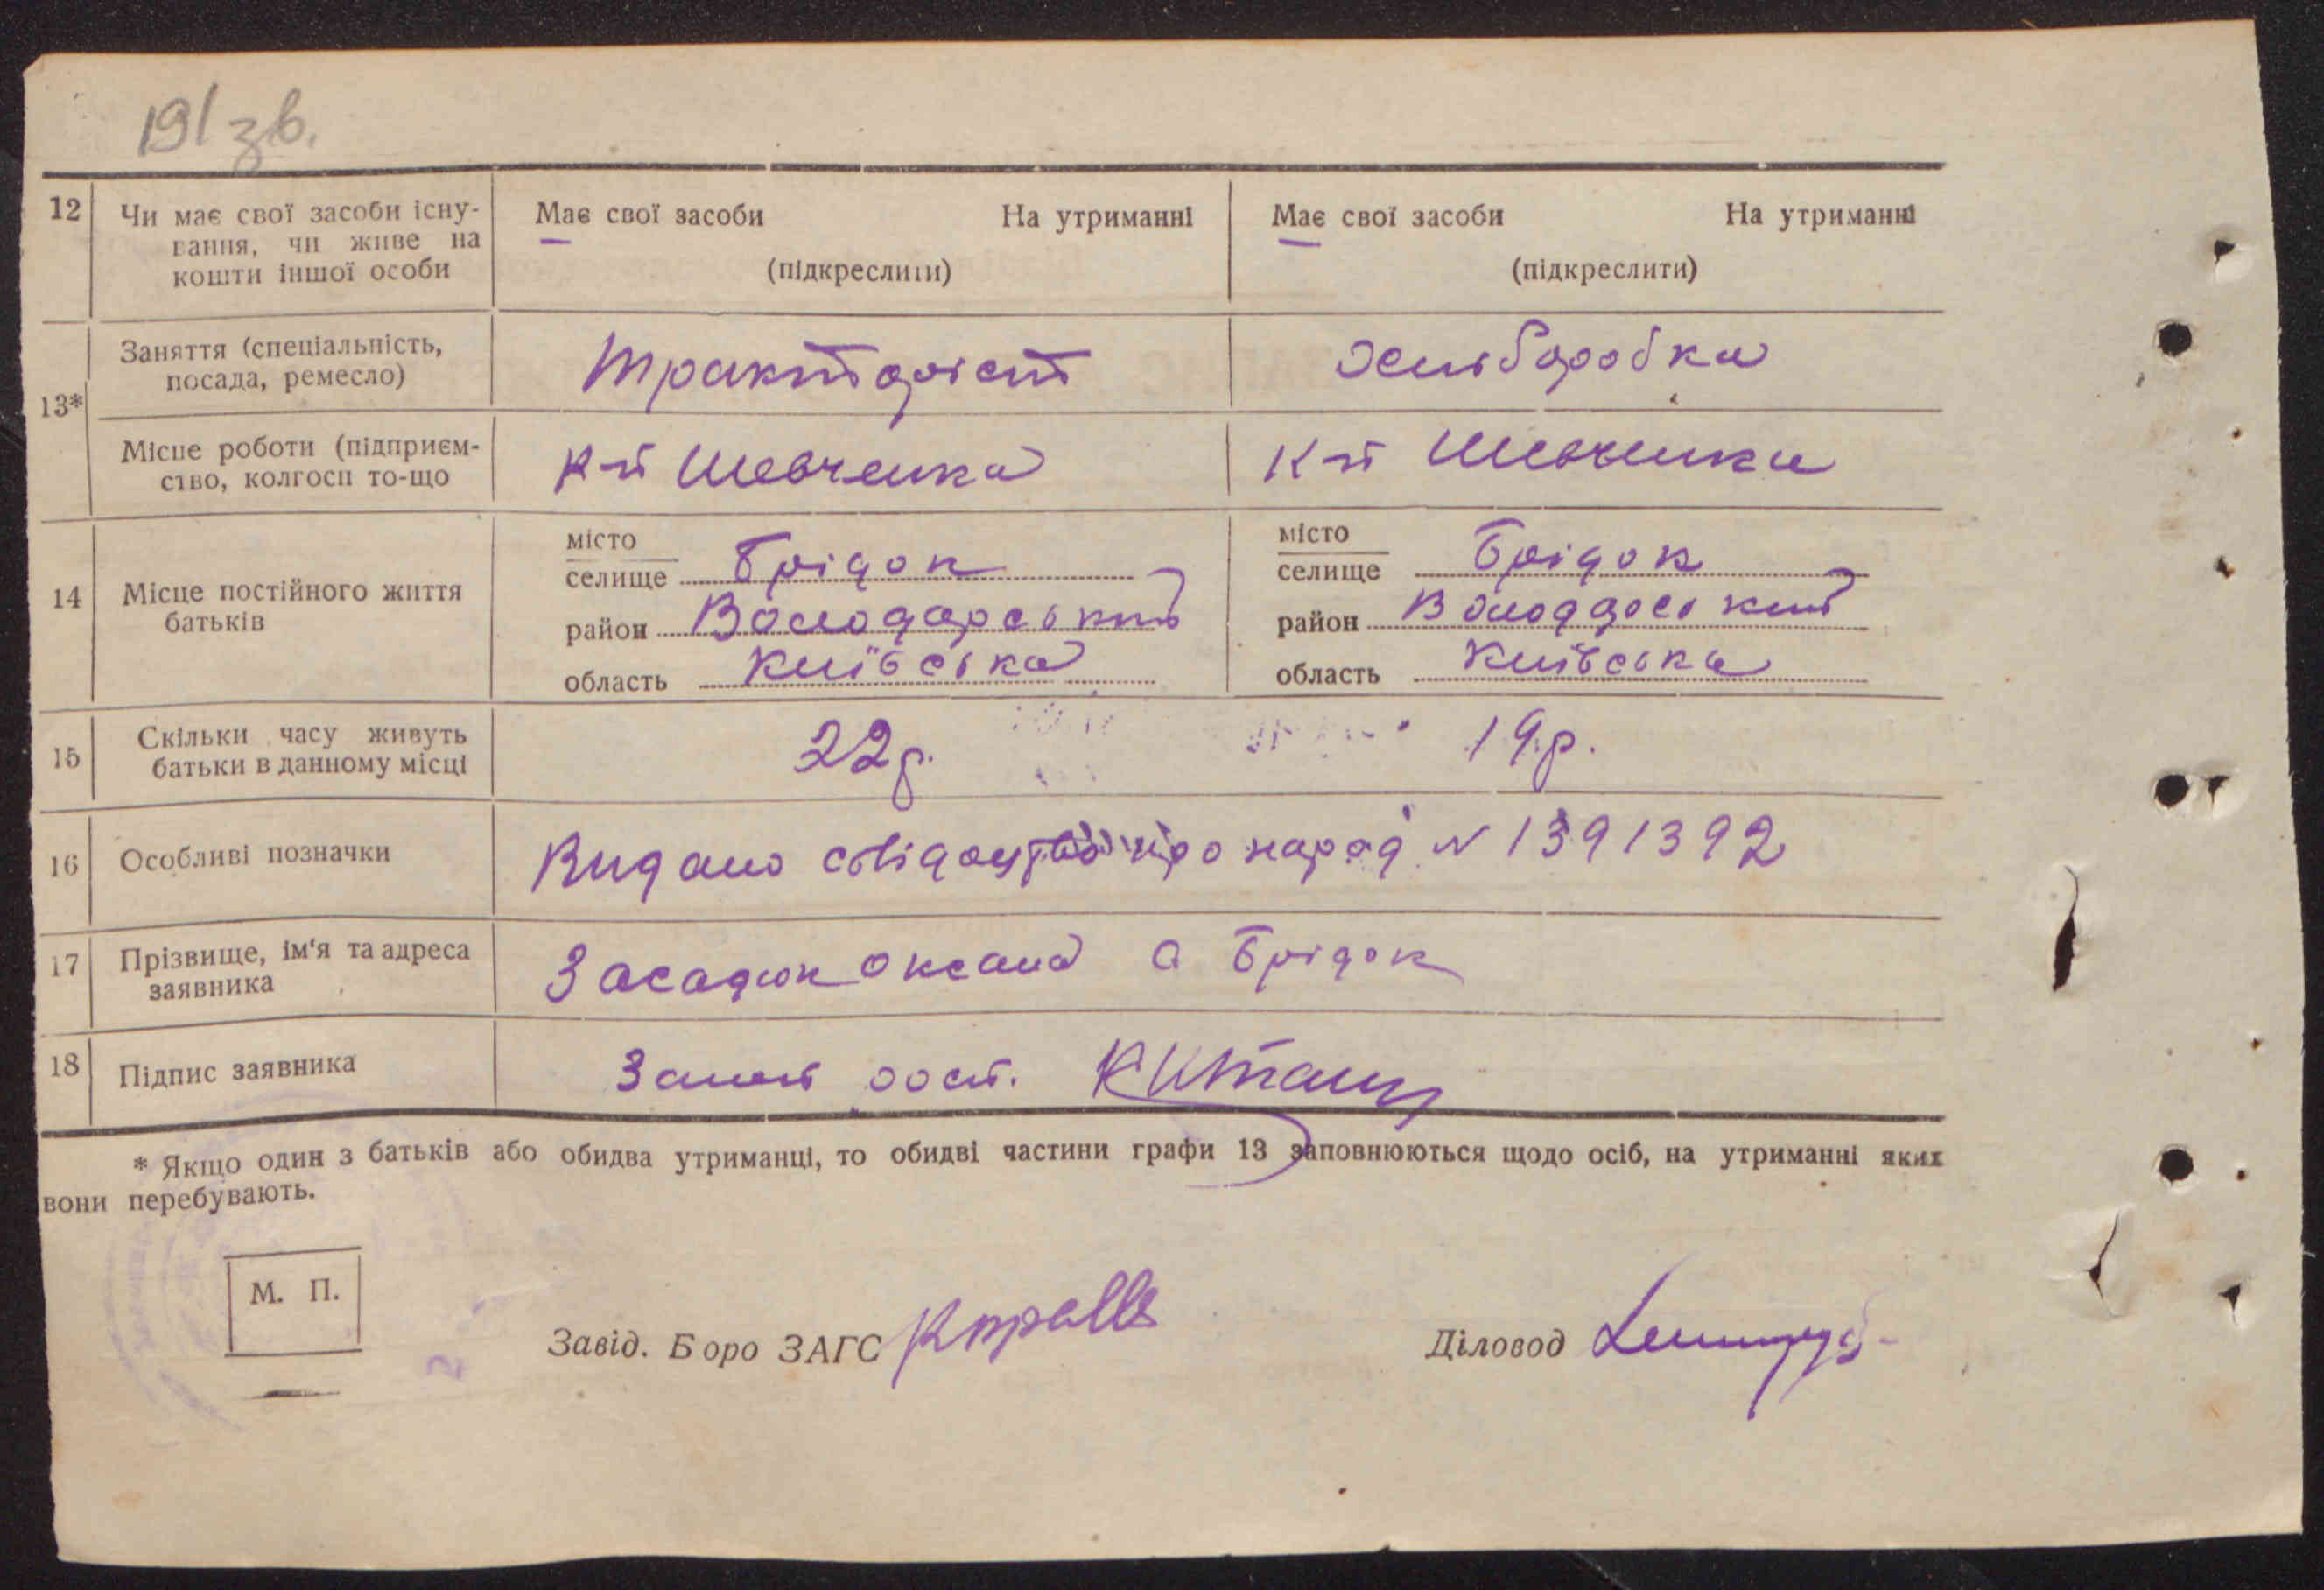 191 зв.
12 Чи має свої засоби існу-
вання, чи живе на
кошти іншої особи
Має свої засоби На утриманні
(підкреслити)
Має свої засоби На утриманні
(підкреслити)
13*
Заняття (спеціальність,
посада, ремесло)
Тракторист
Хліборобка
Місце роботи (підприєм-
ство, колгосп то-що
к-п Шевченка
к-п Шевченка
14 Місце постійного життя
батьків
місто
селище Брідок
район Володарський
область Київська
місто
селище Брідок
район Володарський
область Київська
15 Скільки часу живуть
батьки в данному місці
22 р.
19 р.
16 Особливі позначки
Видано свідоцтво про народ N 1391392
17 Прізвище, ім'я та адреса
заявника
Засадюк Оксана с Брідок
18 Підпис заявника
* Якщо один з батьків або обидва утриманці, то обидві частини графи 13 заповнюються щодо осіб, на утриманні яких
вони перебувають.
М. П.
Завід. Боро ЗАГС
Діловод